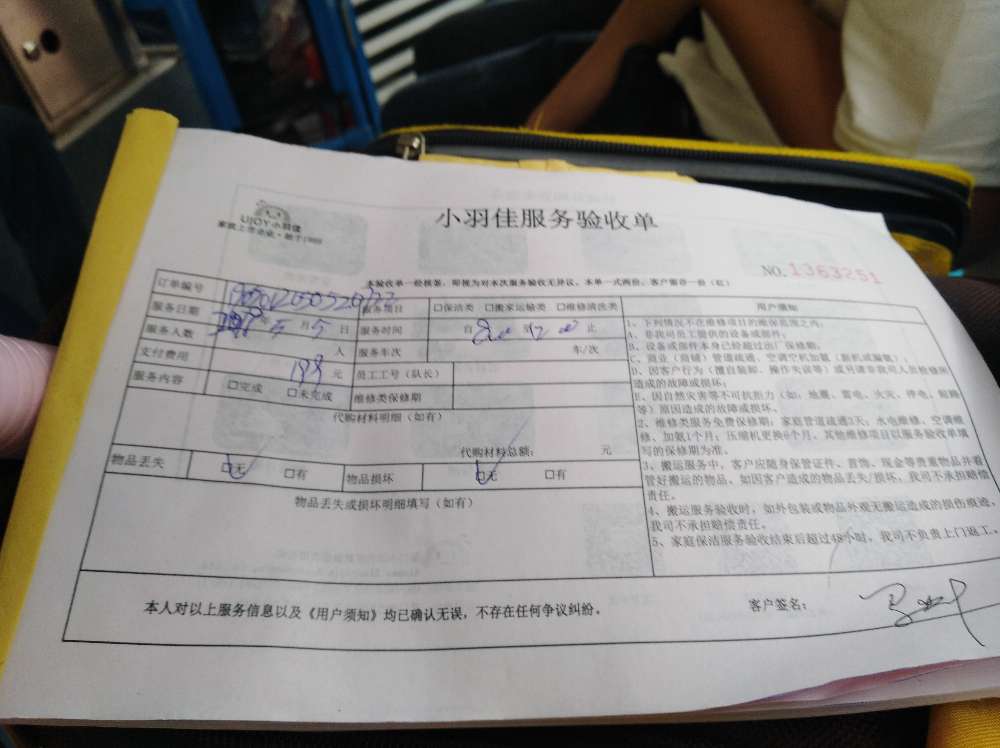 UJOY小羽佳
家政上市企业·始于1999
小羽佳服务验收单
NO.1363251
本验收单一经核签，即视为对本次服务验收无异议。本单一式两份，客户留存一份（红）
订单编号
服务项目 □保洁类 □搬家运输类 □维修清洗类
服务日期 5月5日 服务时间 自 至 止
服务人数 人 服务车次 车/次
支付费用 198元 员工工号（队长）
服务内容 □完成 □未完成 维修类保修期
代购材料明细（如有）
代购材料总额： 元
物品丢失 □无 □有 物品损坏 □无 □有
物品丢失或损坏明细填写（如有）
用户须知
1、下列情况不在维修项目的维保范围之内：
A、非我司员工提供的设备或部件；
B、设备或部件本身已经超过出厂保修期；
C、商业（商铺）管道疏通、空调空机加氨（新机或漏氨）；
D、因客户行为（擅自装卸、操作失误等）或另请非我司人员检修所
造成的故障或损坏；
E、因自然灾害等不可抗拒力（如，地震、雷电、火灾、停电、短路
等）原因造成的故障或损坏。
2、维修类服务免费保修期：家庭管道疏通3天；水电维修、空调维
修、加氨1个月；压缩机更换6个月。其他维修项目以服务验收单填
写的保修期为准。
3、搬运服务中，客户应随身保管证件、首饰、现金等贵重物品并看
管好搬运的物品，如因客户造成的物品丢失/损坏，我司不承担赔偿
责任。
4、搬运服务验收时，如外包装或物品外观无搬运造成的损伤痕迹，
我司不承担赔偿责任。
5、家庭保洁服务验收结束后超过48小时，我司不负责上门返工。
本人对以上服务信息以及《用户须知》均已确认无误，不存在任何争议纠纷。
客户签名：